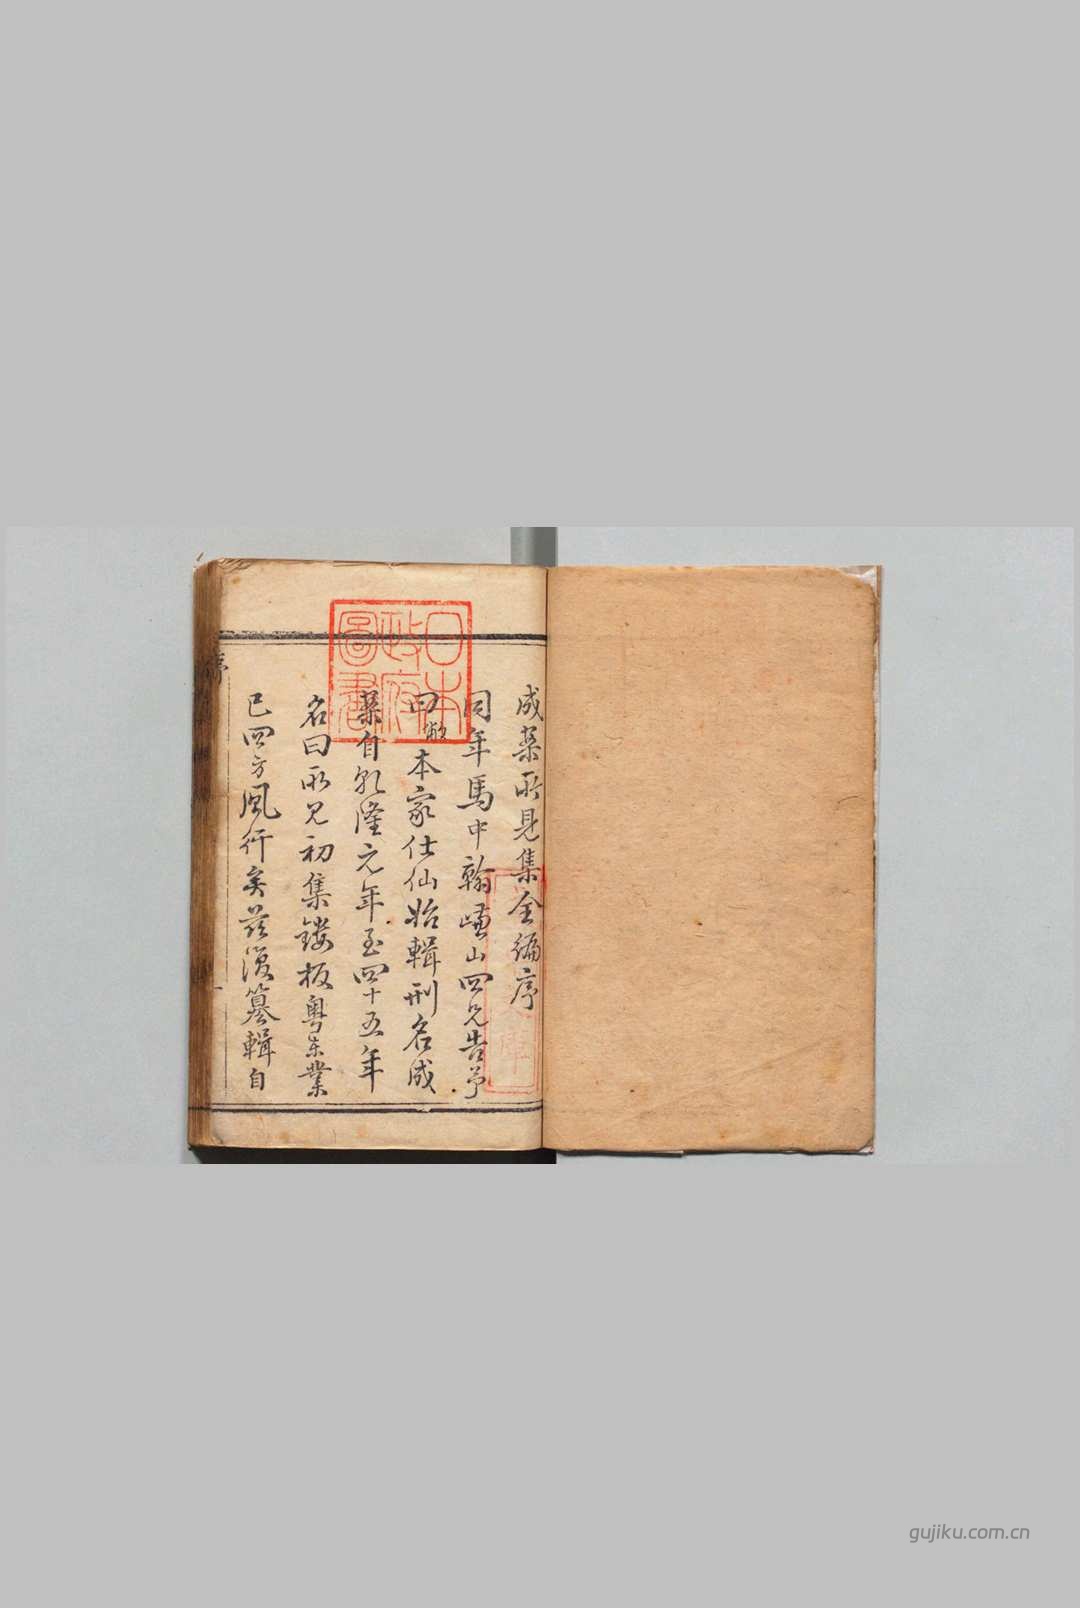 成案所見集全編序
同年馬中翰嶰山四兄告予
曰敝本家仕仙始輯刑名成
案自乾隆元年至四十五年
名曰所見初集鏤板粤東業
已四方風行矣茲復纂輯自
序
一
日本
政府
圖書
庫
gujiku.com.cn